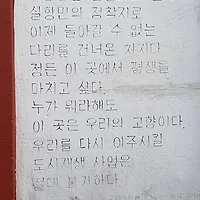 실향민의 정착지로
이제 돌아갈 수 없는
다리를 건너온 처지다
정든 이 곳에서 평생을
마치고 싶다.
누가 뭐라해도
이 곳은 우리의 고향이다.
우리를 다시 이주시킬
도시재생 사업은
절대 불가하다.